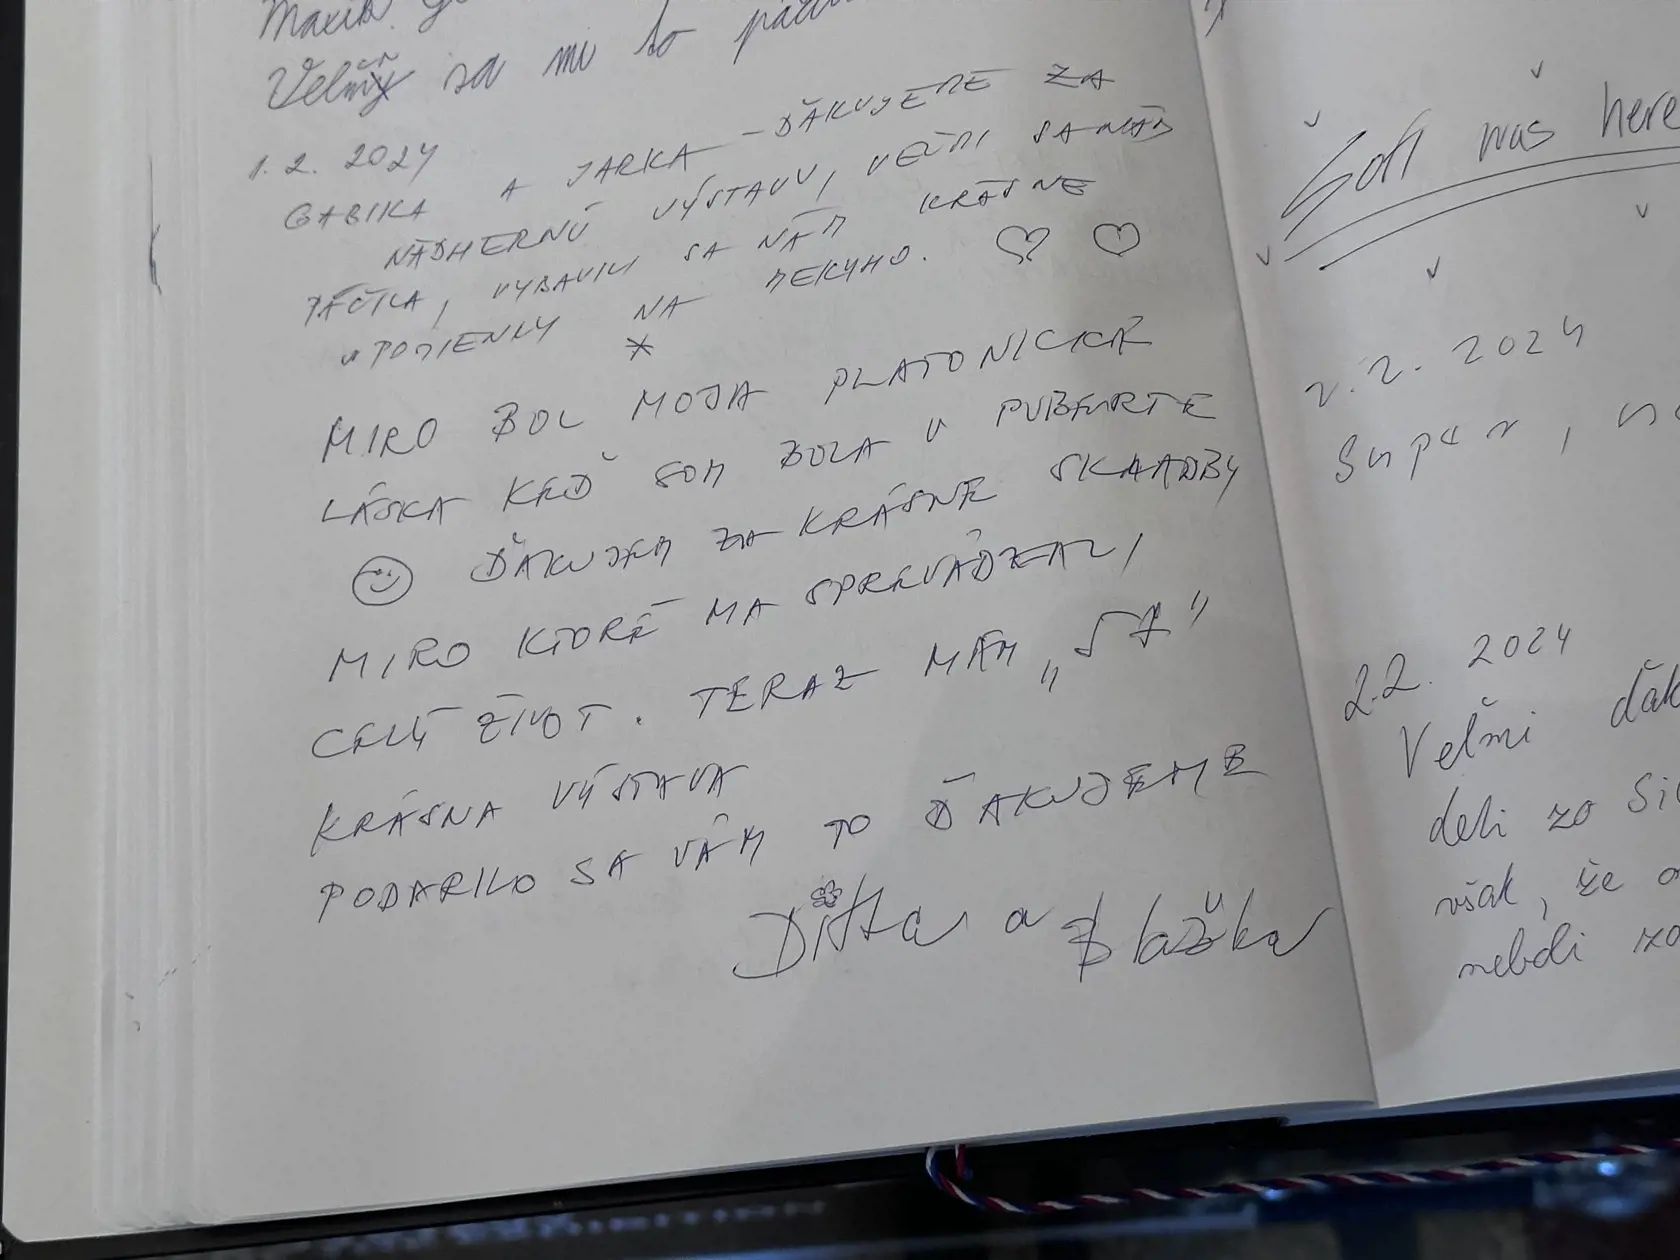 Maxik.
Veľmi sa mi to páči
1. 2. 2024
GABIKA A JARKA – ĎAKUJEME ZA
NÁDHERNÚ VÝSTAVU, VEĽMI SA NÁM
PÁČILA, VYBAVILI SA NÁM KRÁSNE
SPOMIENKY NA MEKYHO. ♡ ♡
*
MIRO BOL MOJA PLATONICKÁ
LÁSKA KEĎ SOM BOLA V PUBERTE
☺ ĎAKUJEM ZA KRÁSNE SKLADBY
MIRO KTORÉ MA SPREVÁDZALI
CELÝ ŽIVOT. TERAZ MÁM „57"
KRÁSNA VÝSTAVA
PODARILO SA VÁM TO ĎAKUJEME
Ditta a Blažka
Sofi was here
2. 2. 2024
Super,
2.2. 2024
Veľmi
deli zo
však, že
nebdi zo